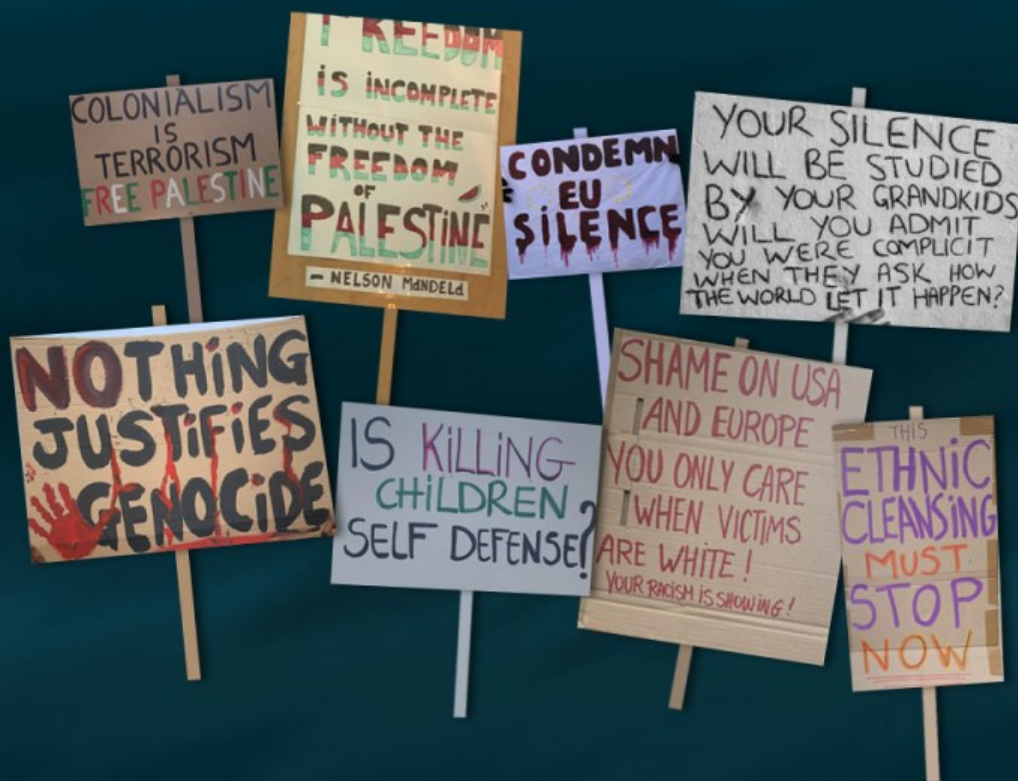 COLONIALISM
IS
TERRORISM
FREE PALESTINE
FREEDOM
iS iNCOMPLETE
WITHOUT THE
FREEDOM
OF
PALESTiNE"
- NELSON MaNDELa
CONDEMN
EU
SiLENCE
YOUR SILENCE
WILL BE STUDIED
BY YOUR GRANDKIDS
WILL YOU ADMIT
YOU WERE COMPLICIT
WHEN THEY ASK HOW
THE WORLD LET IT HAPPEN?
NOTHiNG
JUSTiFiES
GENOCiDE
IS KiLLiNG
CHiLDREN
SELF DEFENSE?
SHAME ON USA
AND EUROPE
YOU ONLY CARE
WHEN VICTIMS
ARE WHITE!
YOUR RACISM IS SHOWING!
THIS
ETHNiC
CLEANSiNG
MUST
STOP
NOW